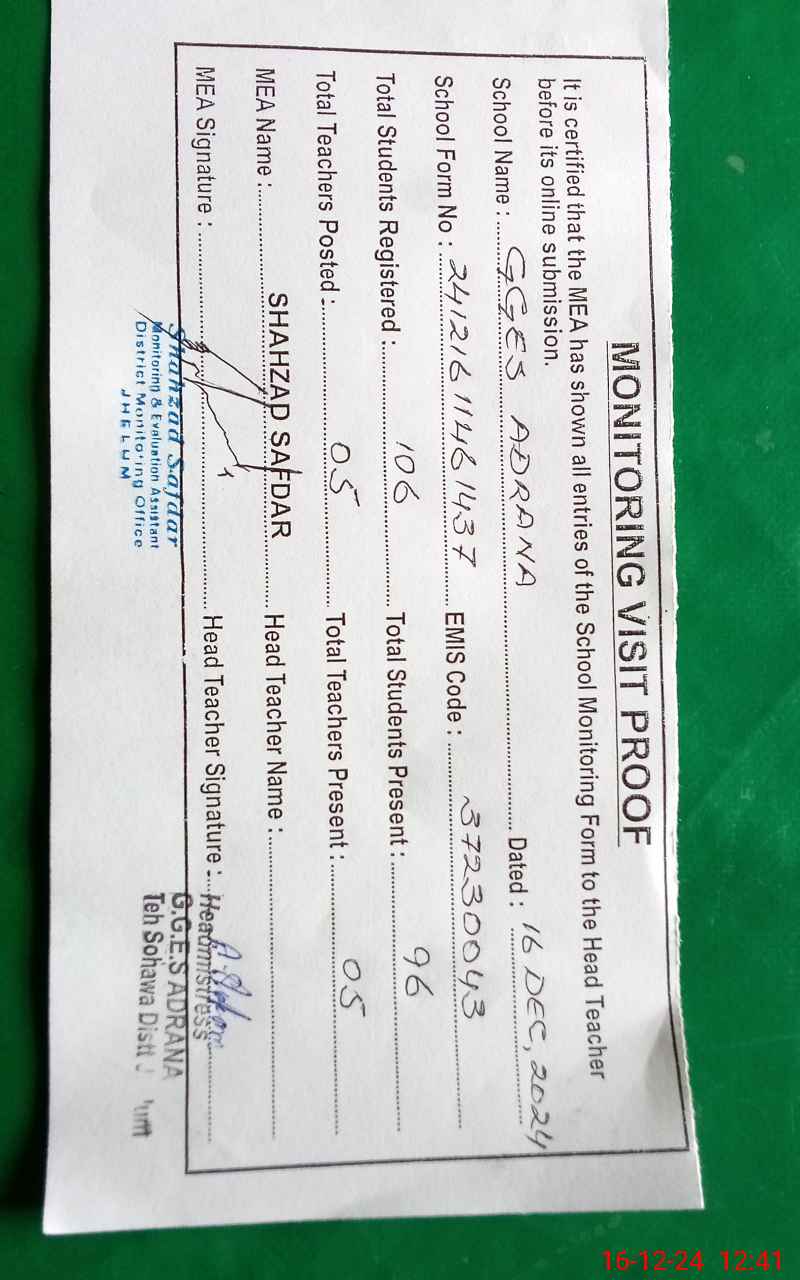 MONITORING VISIT PROOF
It is certified that the MEA has shown all entries of the School Monitoring Form to the Head Teacher
before its online submission.
School Name : GGES ADRANA Dated : 16 DEC, 2024
School Form No : 24121611461437 EMIS Code : 37230043
Total Students Registered : 106 Total Students Present : 96
Total Teachers Posted : 05 Total Teachers Present : 05
MEA Name : SHAHZAD SAFDAR Head Teacher Name :
MEA Signature : Head Teacher Signature :
Shahzad Safdar
Monitoring & Evaluation Assistant
District Monitoring Office
JHELUM
Headmistress
G.G.E.S ADRANA
Teh Sohawa Distt
16-12-24 12:41